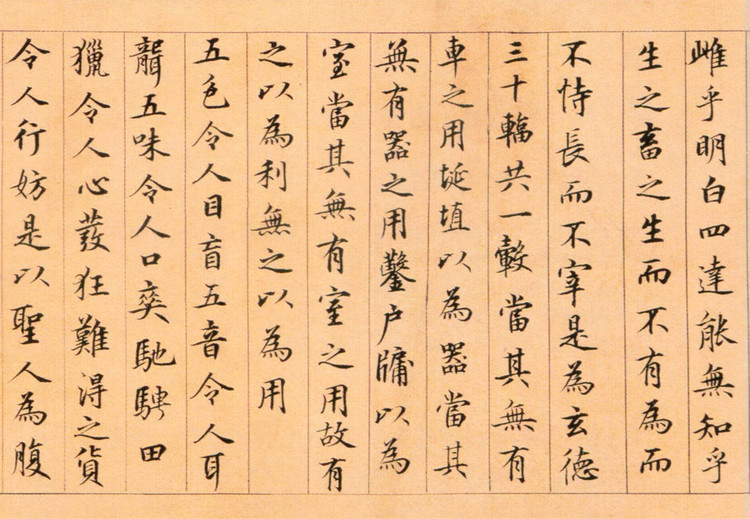 雌乎明白四達能無知乎
生之畜之生而不有為而
不恃長而不宰是為玄德
三十輻共一轂當其無有
車之用埏埴以為器當其
無有器之用鑿户牖以為
室當其無有室之用故有
之以為利無之以為用
五色令人目盲五音令人耳
聾五味令人口爽馳騁田
獵令人心發狂難得之貨
令人行妨是以聖人為腹